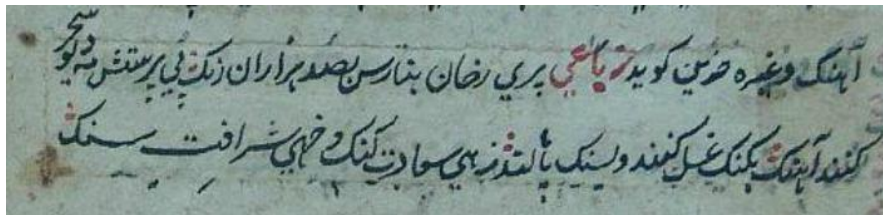 آهنگ وغیره حزین کوید رباعی پری رخان بنارس بصد هزاران رنک پی پرستش مه دیو سحر
کنند آهنک بکنک غسل کنند و بسنک پا زهی سعادت کنک و خهی شرافت سنک